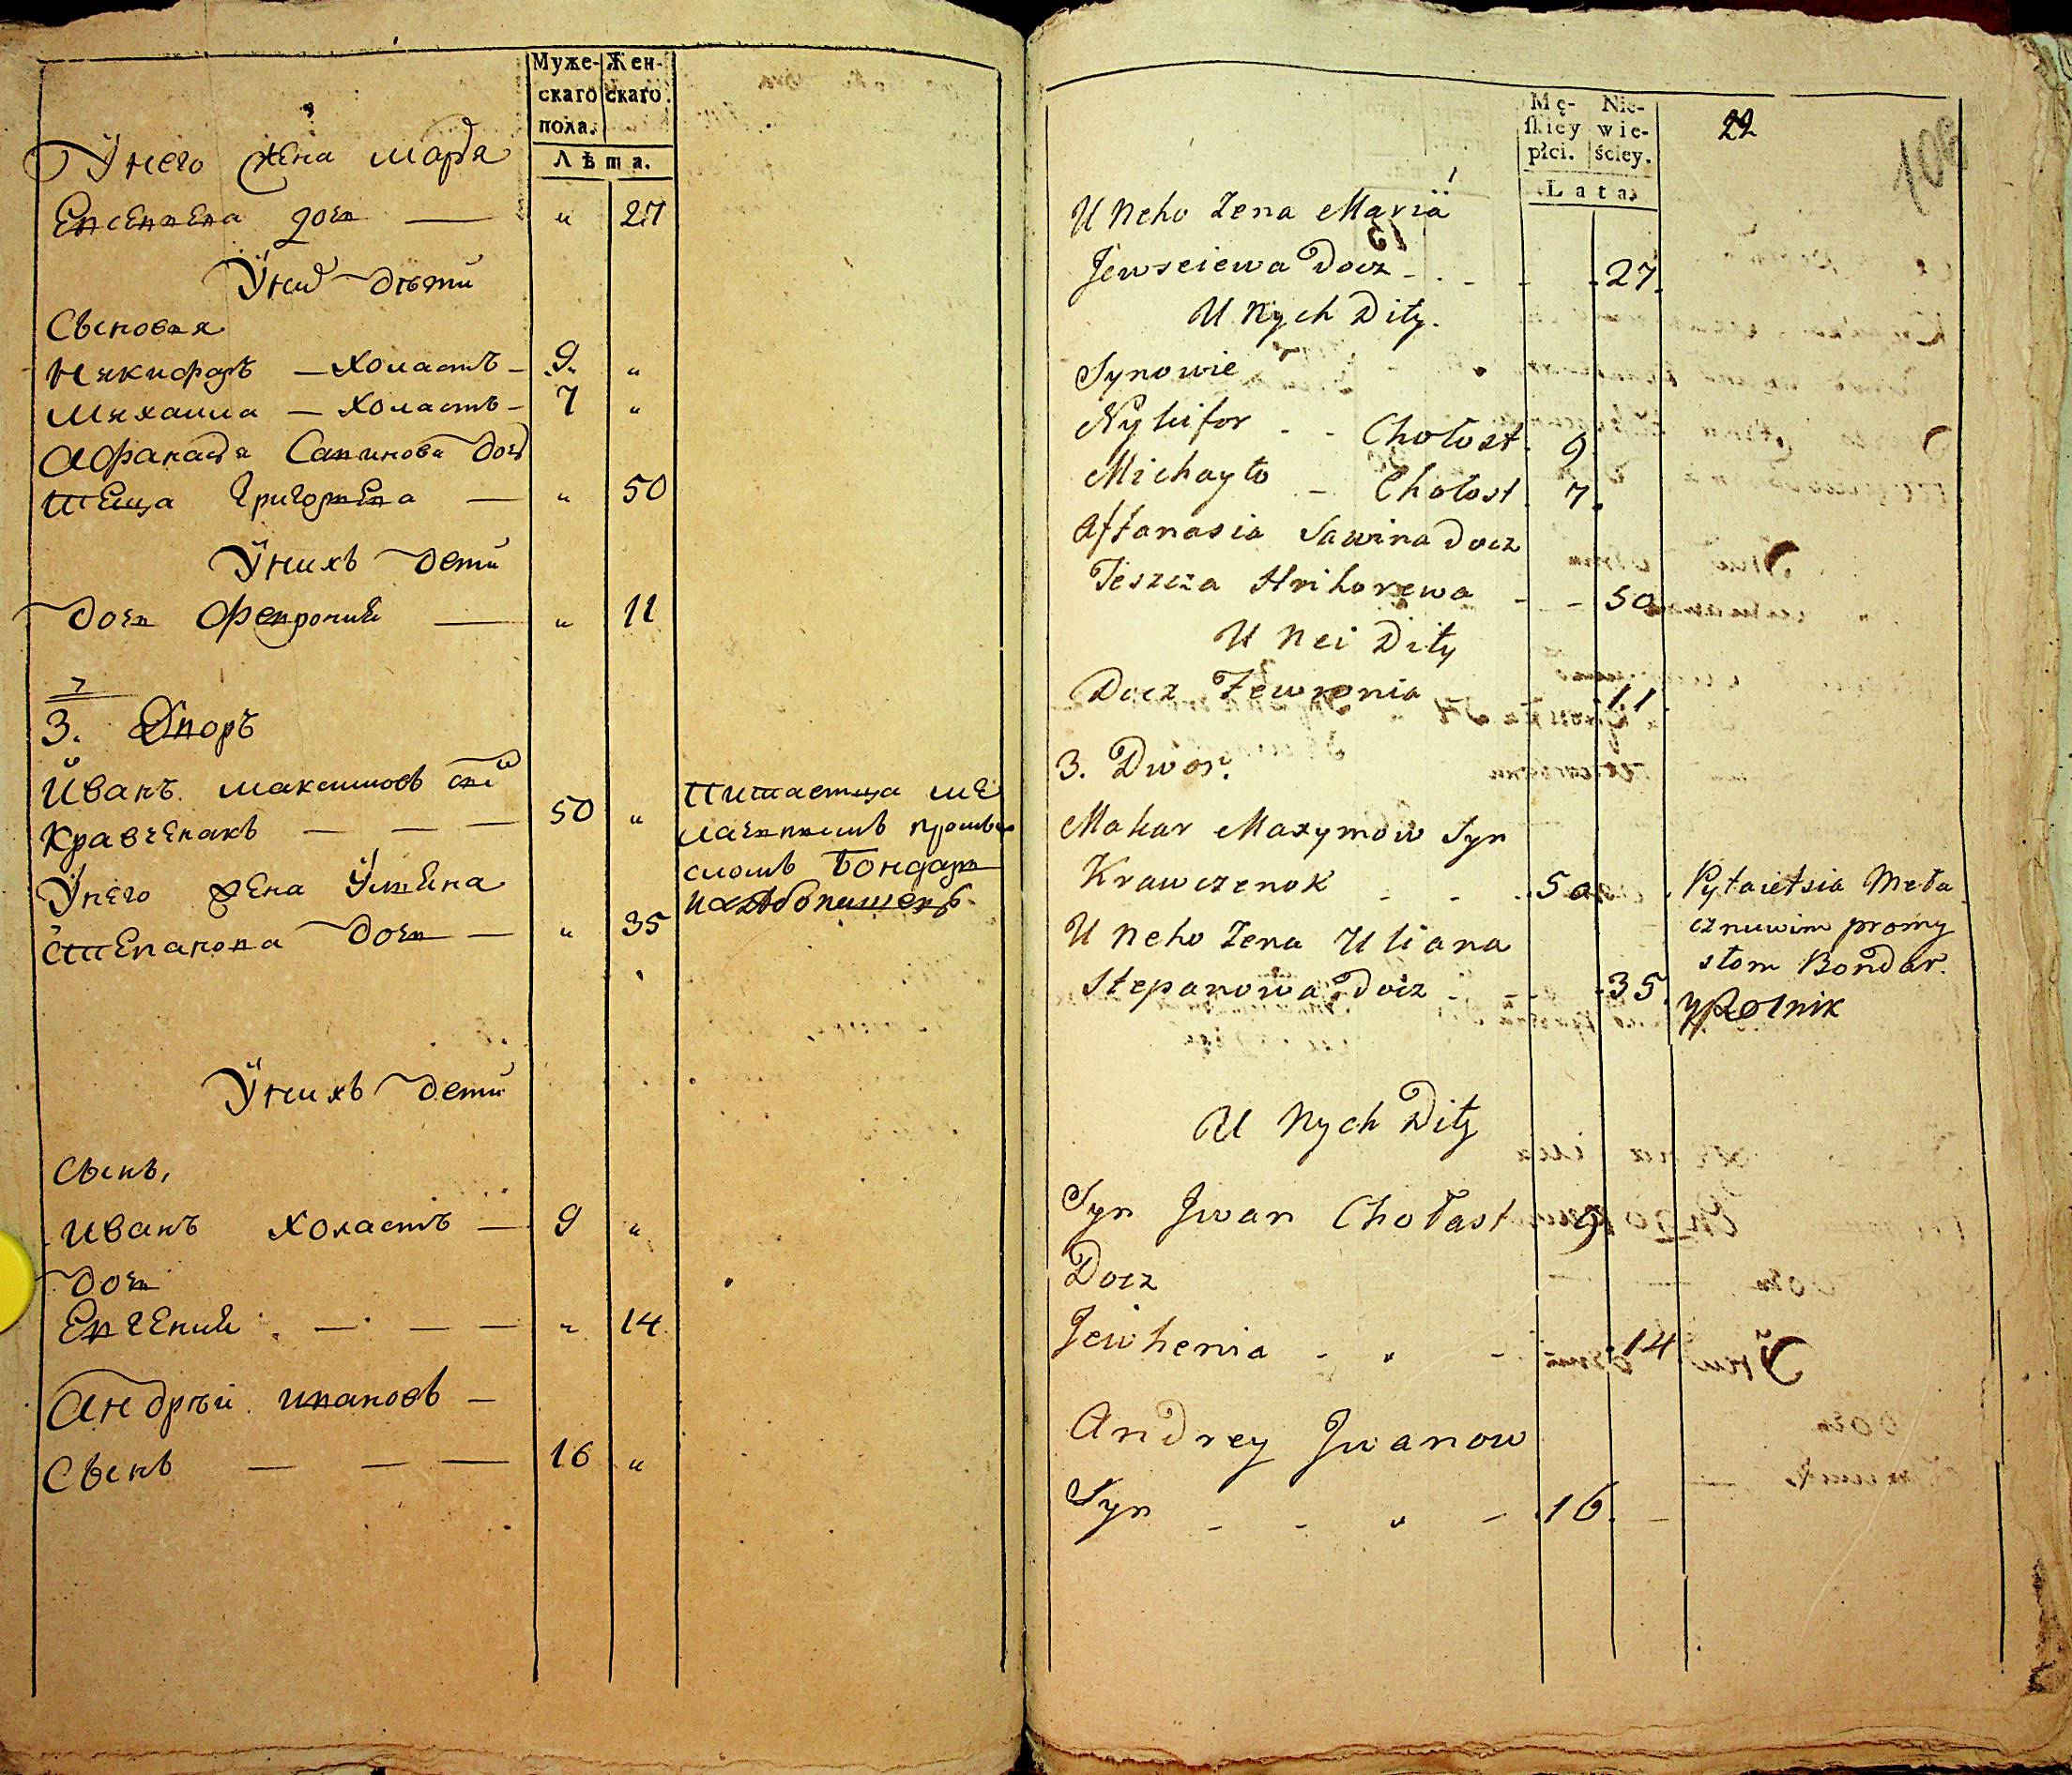 Муже- Жен-
скаго скаго
пола.
Лѣта.
У него жена Марія
Евсеивева дочь — " 27
У них дѣти
Сынове
Никифоръ — холастъ — 9 "
Михаила — холастъ — 7 "
Афанасія Савинова дочь
теща Григорева — " 50
У нихъ дети
дочь Февронія — " 11
3. Дворъ
Иванъ Максимовъ снъ
Кравченакъ — — — 50 "
Питаетца ме
лачнымъ промы
сломъ Бондар
У него жена Ульяна
Степанова дочь — " 35
У нихъ дети
Сынъ,
Иванъ холастъ — 9 "
дочь
Евгения — — — " 14
Андрѣй Ивановъ —
Сынъ — — — 16 "
Mę- Nie-
skiey wie-
płci. ściey.
Lata.
22
106
U Neho Zena Maria
Jewseiewa Docz - 27
U Nych Dity.
Synowie
Nykifor - - Chołost 9
Michayło - Chołost 7
Affanasia Sawina Docz
Teszcza Hrihorewa - - 50
U Nei Dity
Docz Fewronia - 11
3. Dwor.
Makar Maxymow Syn
Krawczenok - - 50
Pytaietsia Meła
cznuwim promy
słom Bondar.
y Rolnik
U Neho Zena Uliana
Stepanowa Docz - - 35
U Nych Dity
Syn Jwan Chołast 9
Docz
Jewhenia - " - 14
Andrey Jwanow
Syn - - " - 16 -